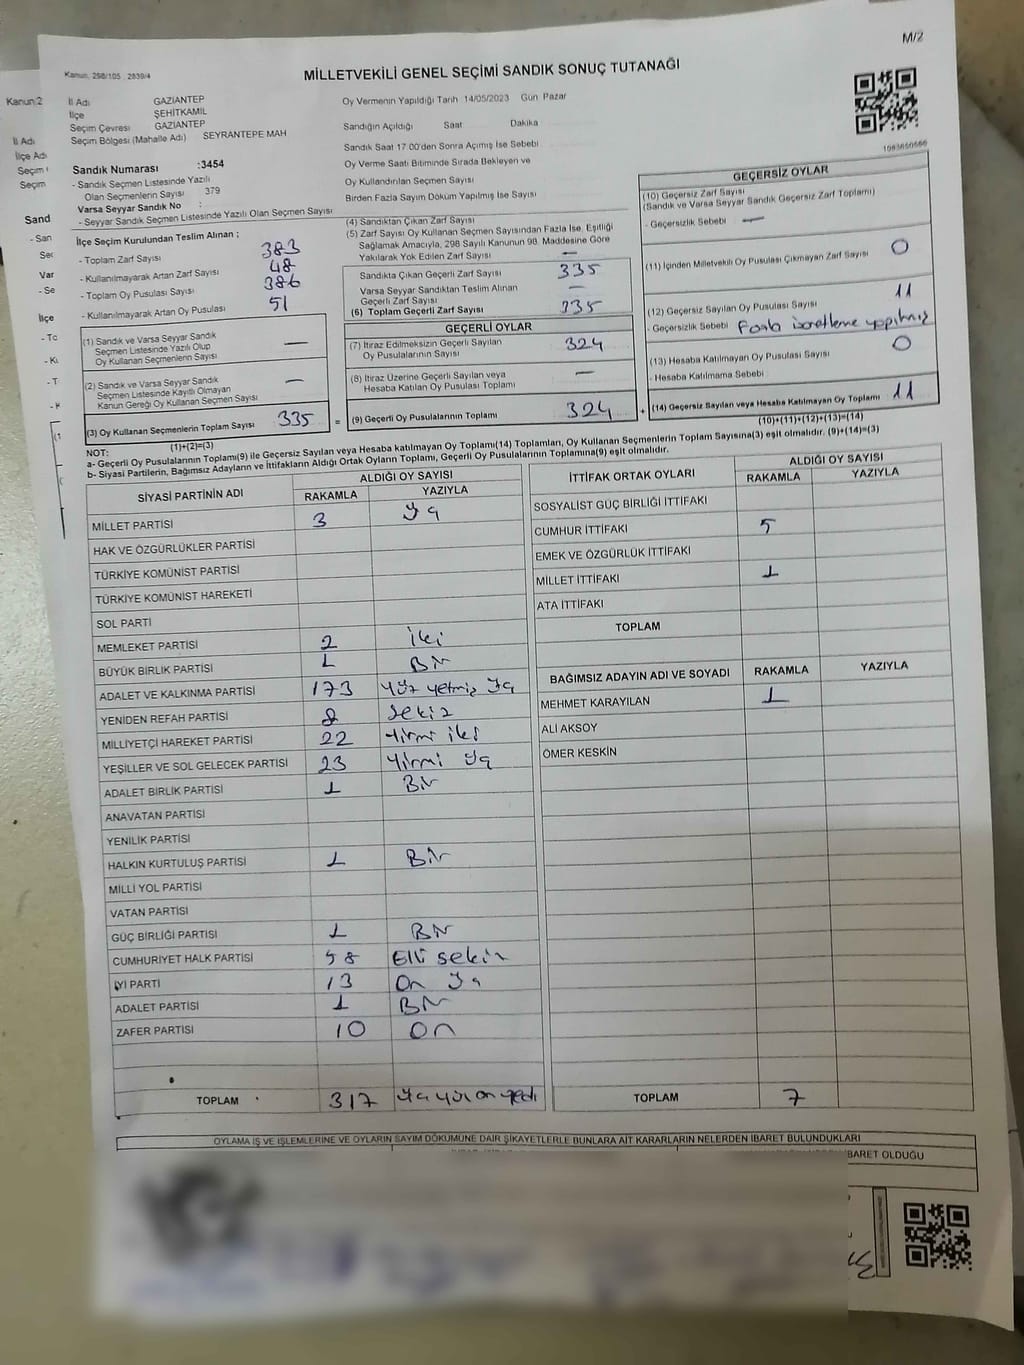 M/2
Kanun, 298/105 2839/4
MİLLETVEKİLİ GENEL SEÇİMİ SANDIK SONUÇ TUTANAĞI
Kanun 2
İl Adı GAZİANTEP
İlçe ŞEHİTKAMİL
Seçim Çevresi GAZİANTEP
Seçim Bölgesi (Mahalle Adı) SEYRANTEPE MAH
Sandık Numarası :3454
- Sandık Seçmen Listesinde Yazılı
Olan Seçmenlerin Sayısı 379
Varsa Seyyar Sandık No :
- Seyyar Sandık Seçmen Listesinde Yazılı Olan Seçmen Sayısı
Oy Vermenin Yapıldığı Tarih 14/05/2023 Gün Pazar
Sandığın Açıldığı Saat Dakika
Sandık Saat 17.00'den Sonra Açımış İse Sebebi
Oy Verme Saati Bitiminde Sırada Bekleyen ve
Oy Kullandırılan Seçmen Sayısı
Birden Fazla Sayım Döküm Yapılmış İse Sayısı
1083650566
İlçe Seçim Kurulundan Teslim Alınan ;
- Toplam Zarf Sayısı 383
- Kullanılmayarak Artan Zarf Sayısı 48
- Toplam Oy Pusulası Sayısı 386
- Kullanılmayarak Artan Oy Pusulası 51
(1) Sandık ve Varsa Seyyar Sandık
Seçmen Listesinde Yazılı Olup
Oy Kullanan Seçmenlerin Sayısı —
(2) Sandık ve Varsa Seyyar Sandık
Seçmen Listesinde Kayıtlı Olmayan
Kanun Gereği Oy Kullanan Seçmen Sayısı —
(3) Oy Kullanan Seçmenlerin Toplam Sayısı 335
(1)+(2)=(3)
(4) Sandıktan Çıkan Zarf Sayısı
(5) Zarf Sayısı Oy Kullanan Seçmen Sayısından Fazla İse, Eşitliği
Sağlamak Amacıyla, 298 Sayılı Kanunun 98. Maddesine Göre
Yakılarak Yok Edilen Zarf Sayısı —
Sandıkta Çıkan Geçerli Zarf Sayısı 335
Varsa Seyyar Sandıktan Teslim Alınan
Geçerli Zarf Sayısı —
(6) Toplam Geçerli Zarf Sayısı 335
GEÇERLİ OYLAR
(7) İtiraz Edilmeksizin Geçerli Sayılan
Oy Pusulalarının Sayısı 324
(8) İtiraz Üzerine Geçerli Sayılan veya
Hesaba Katılan Oy Pusulası Toplamı —
= (9) Geçerli Oy Pusulalarının Toplamı 324 +
GEÇERSİZ OYLAR
(10) Geçersiz Zarf Sayısı
(Sandık ve Varsa Seyyar Sandık Geçersiz Zarf Toplamı)
- Geçersizlik Sebebi —
(11) İçinden Milletvekili Oy Pusulası Çıkmayan Zarf Sayısı 0
(12) Geçersiz Sayılan Oy Pusulası Sayısı 11
- Geçersizlik Sebebi Fazla işaretleme yapılmış
(13) Hesaba Katılmayan Oy Pusulası Sayısı 0
- Hesaba Katılmama Sebebi
(14) Geçersiz Sayılan veya Hesaba Katılmayan Oy Toplamı 11
(10)+(11)+(12)+(13)=(14)
NOT:
a- Geçerli Oy Pusulalarının Toplamı(9) ile Geçersiz Sayılan veya Hesaba katılmayan Oy Toplamı(14) Toplamları, Oy Kullanan Seçmenlerin Toplam Sayısına(3) eşit olmalıdır. (9)+(14)=(3)
b- Siyasi Partilerin, Bağımsız Adayların ve İttifakların Aldığı Ortak Oyların Toplamı, Geçerli Oy Pusulalarının Toplamına(9) eşit olmalıdır.
SİYASİ PARTİNİN ADI ALDIĞI OY SAYISI
RAKAMLA YAZIYLA
MİLLET PARTİSİ 3 Üç
HAK VE ÖZGÜRLÜKLER PARTİSİ
TÜRKİYE KOMÜNİST PARTİSİ
TÜRKİYE KOMÜNİST HAREKETİ
SOL PARTİ
MEMLEKET PARTİSİ 2 İki
BÜYÜK BİRLİK PARTİSİ 1 Bir
ADALET VE KALKINMA PARTİSİ 173 Yüz yetmiş üç
YENİDEN REFAH PARTİSİ 8 Sekiz
MİLLİYETÇİ HAREKET PARTİSİ 22 Yirmi iki
YEŞİLLER VE SOL GELECEK PARTİSİ 23 Yirmi üç
ADALET BİRLİK PARTİSİ 1 Bir
ANAVATAN PARTİSİ
YENİLİK PARTİSİ
HALKIN KURTULUŞ PARTİSİ 1 Bir
MİLLİ YOL PARTİSİ
VATAN PARTİSİ
GÜÇ BİRLİĞİ PARTİSİ 1 Bir
CUMHURİYET HALK PARTİSİ 58 Elli sekiz
İYİ PARTİ 13 On üç
ADALET PARTİSİ 1 Bir
ZAFER PARTİSİ 10 On
TOPLAM 317 Üç yüz on yedi
İTTİFAK ORTAK OYLARI ALDIĞI OY SAYISI
RAKAMLA YAZIYLA
SOSYALİST GÜÇ BİRLİĞİ İTTİFAKI
CUMHUR İTTİFAKI 5
EMEK VE ÖZGÜRLÜK İTTİFAKI
MİLLET İTTİFAKI 1
ATA İTTİFAKI
TOPLAM
BAĞIMSIZ ADAYIN ADI VE SOYADI RAKAMLA YAZIYLA
MEHMET KARAYILAN 1
ALİ AKSOY
ÖMER KESKİN
TOPLAM 7
OYLAMA İŞ VE İŞLEMLERİNE VE OYLARIN SAYIM DÖKÜMÜNE DAİR ŞİKAYETLERLE BUNLARA AİT KARARLARIN NELERDEN İBARET BULUNDUKLARI
İBARET OLDUĞU